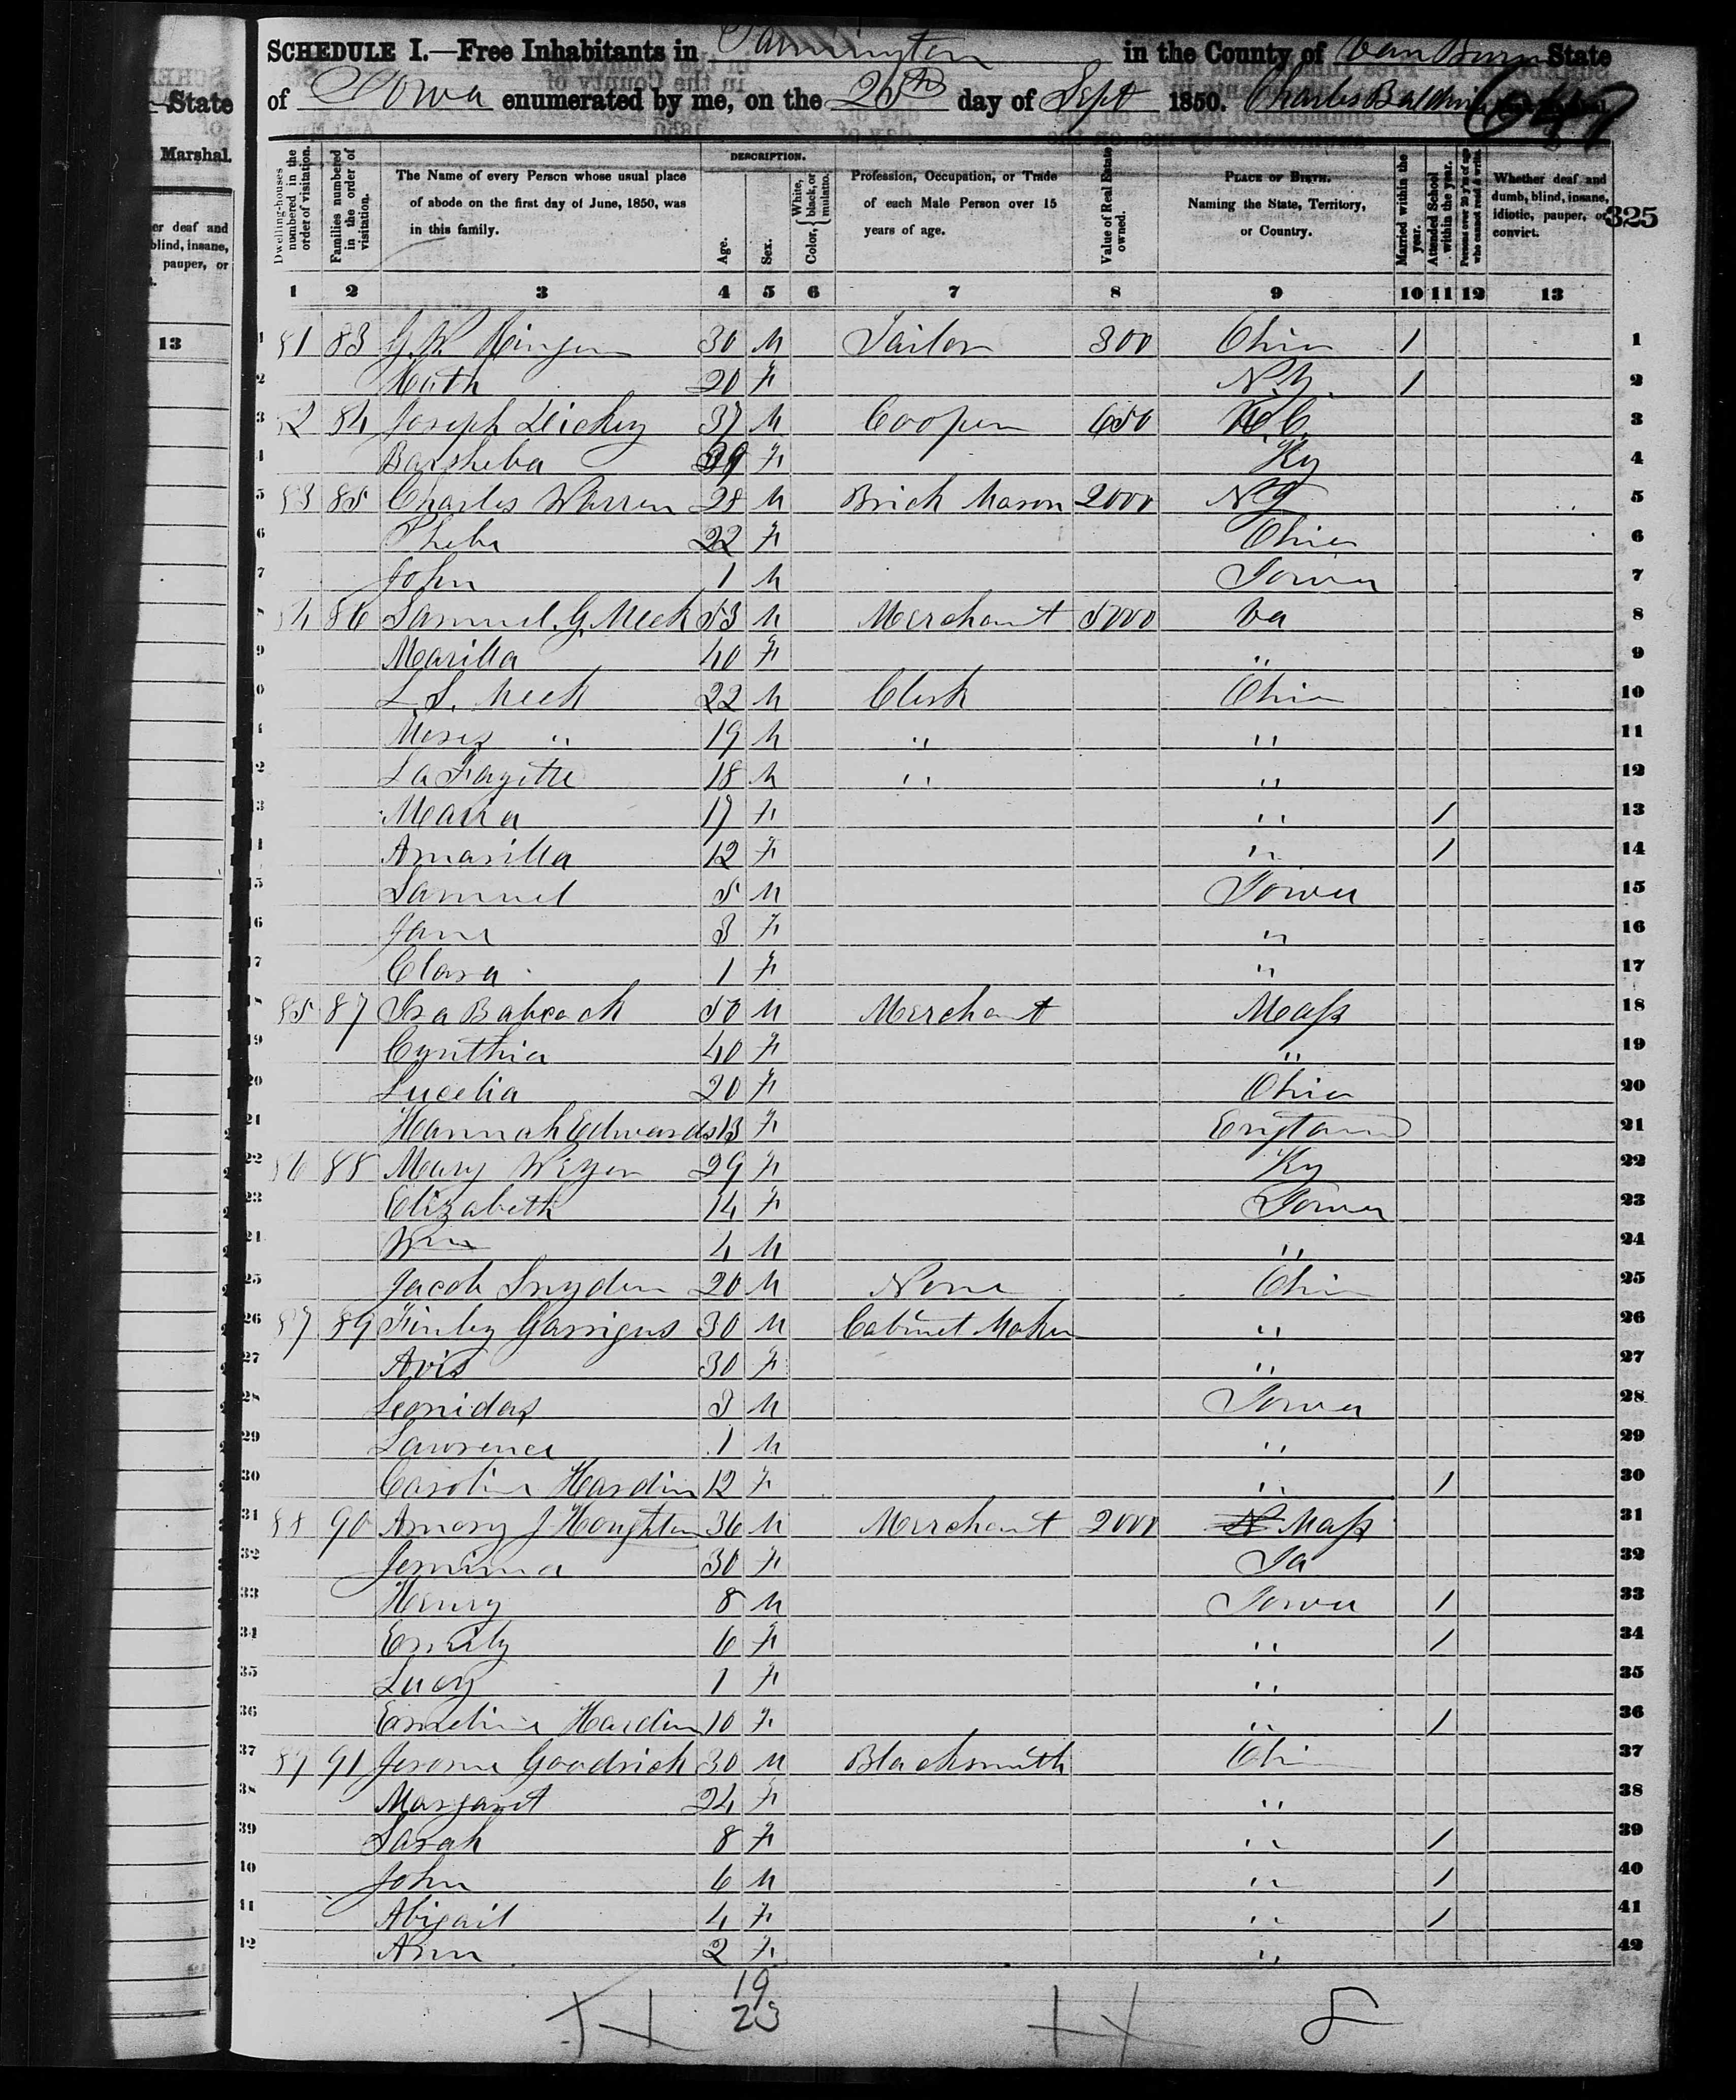 State
Marshal.
er deaf and
blind, insane,
pauper, or
t.
13
SCHEDULE I.—Free Inhabitants in Farmington in the County of Van Buren State
of Iowa enumerated by me, on the 25th day of Sept 1850. Charles Baldwin
647
325
Dwelling-houses numbered in the order of visitation.
Families numbered in the order of visitation.
The Name of every Person whose usual place of abode on the first day of June, 1850, was in this family.
DESCRIPTION.
Age.
Sex.
Color, { White, black, or mulatto.
Profession, Occupation, or Trade of each Male Person over 15 years of age.
Value of Real Estate owned.
PLACE OF BIRTH. Naming the State, Territory, or Country.
Married within the year.
Attended School within the year.
Persons over 20 y'rs of age who cannot read & write.
Whether deaf and dumb, blind, insane, idiotic, pauper, or convict.
1 2 3 4 5 6 7 8 9 10 11 12 13
1 81 83 G. W. 30 M Tailor 300 Ohio 1 1
2 20 F N.Y. 1 2
3 82 84 Joseph Dickey 37 M Cooper 650 N.C. 3
4 Barsheba F Ky 4
5 83 85 Charles Warren 28 M Brick Mason 2000 NY 5
6 Pheba 22 F Ohio 6
7 John 1 M Iowa 7
8 84 86 Samuel G. Meek 53 M Merchant 5000 Va 8
9 Marilla 40 F " 9
10 L. S. Meek 22 M Clerk Ohio 10
11 Moses " 19 M " " 11
12 La Fayette 18 M " " 12
13 Maria 17 F " 1 13
14 Amarilla 12 F " 1 14
15 Samuel 5 M Iowa 15
16 Jane 3 F " 16
17 Clara 1 F " 17
18 85 87 Ira Babcock 50 M Merchant Mass 18
19 Cynthia 40 F " 19
20 Lucelia 20 F Ohio 20
21 Hannah Edwards 13 F England 21
22 86 88 Mary 29 F Ky 22
23 Elizabeth 14 F Iowa 23
24 Wm 4 M " 24
25 Jacob Snyder 20 M None Ohio 25
26 87 89 Finley Garrigus 30 M Cabinet Maker " 26
27 Avis 30 F " 27
28 Leonidas 3 M Iowa 28
29 Lawrence 1 M " 29
30 Caroline Hardin 12 F " 1 30
31 88 90 Amory J Houghton 36 M Merchant 2000 N Mass 31
32 Jemima 30 F Ia 32
33 Henry 8 M Iowa 1 33
34 Emily 6 F " 1 34
35 Lucy 1 F " 35
36 Emeline Hardin 10 F " 1 36
37 89 91 Jerome Goodrich 30 M Blacksmith Ohio 37
38 Margaret 24 F " 38
39 Sarah 8 F " 1 39
40 John 6 M " 1 40
41 Abigail 4 F " 1 41
42 Ann 2 F " 42
19
23
8